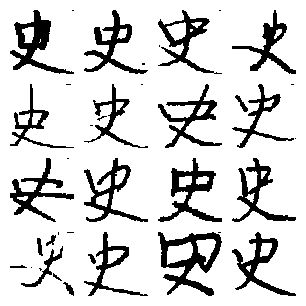 史史史史
史史史史
史史史史
史史史史